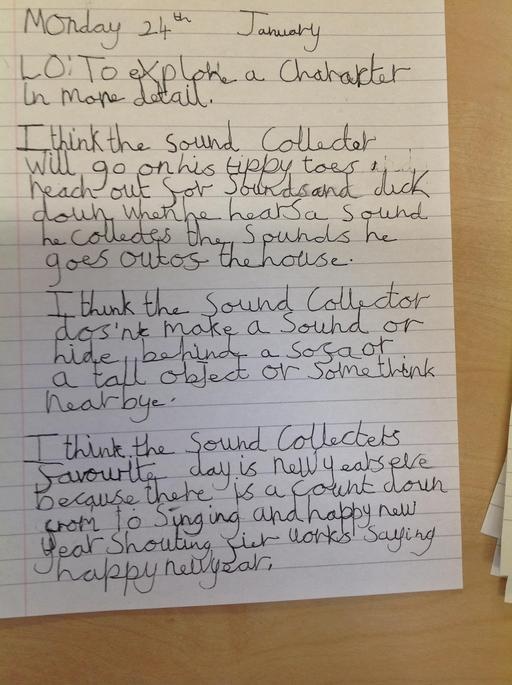 Monday 24th January
LO: To explore a Charakter
in more detail.
I think the Sound Collecter
will go on his tippy toes
reach out for Sounds and duck
down when he hears a Sound
he Collectes the Sounds he
goes out of the house.
I think the Sound Collector
dos'nt make a Sound or
hide behind a sofa or
a tall object or Somethink
nearbye.
I think the Sound Collecters
favourite day is new years eve
because there is a Count down
from 10 Singing and happy new
year Shouting fier works Saying
happy new year.